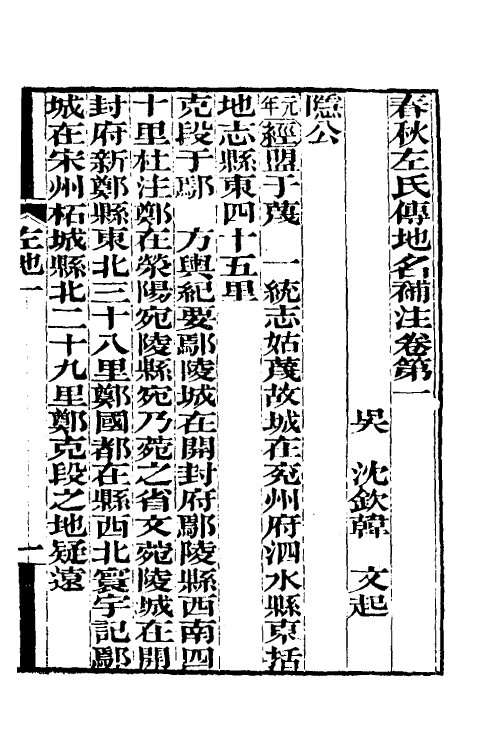 春秋左氏傳地名補注卷第一
吳 沈欽韓 文起
隱公
元年經盟于蔑 一統志姑蔑故城在兗州府泗水縣東括
地志縣東四十五里
克段于鄢 方輿紀要鄢陵城在開封府鄢陵縣西南四
十里杜注鄭在滎陽宛陵縣宛乃菀之省文菀陵城在開
封府新鄭縣東北三十八里鄭國都在縣西北寰宇記鄢
城在宋州柘城縣北二十九里鄭克段之地疑遠
左地一
一